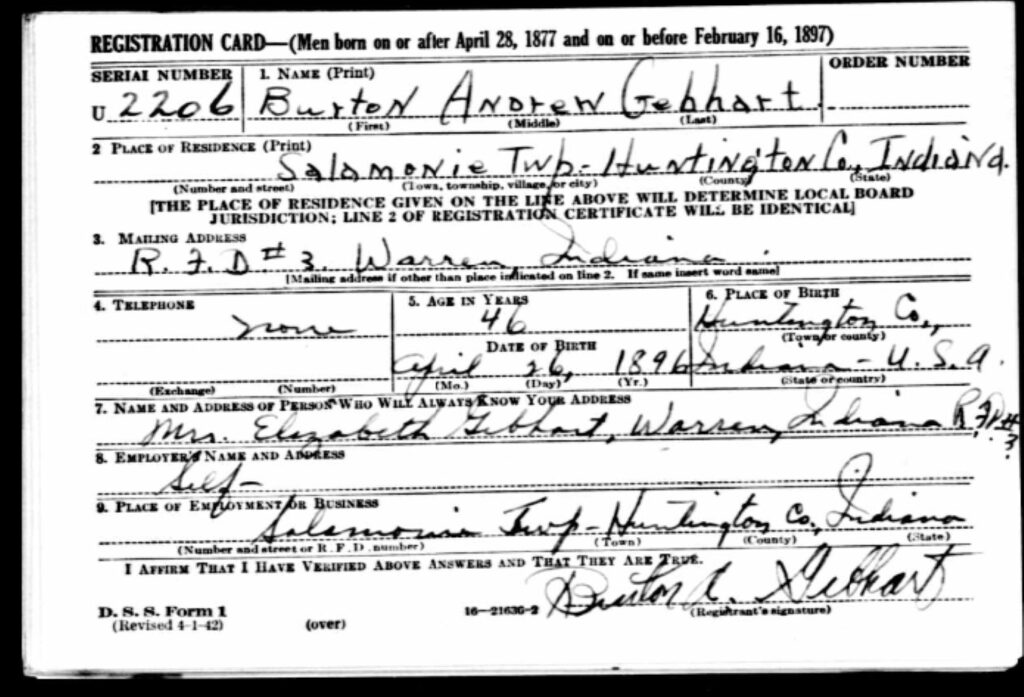 REGISTRATION CARD—(Men born on or after April 28, 1877 and on or before February 16, 1897)
SERIAL NUMBER 1. NAME (Print) ORDER NUMBER
U 2206 Burton Andrew Gebhart
(First) (Middle) (Last)
2 PLACE OF RESIDENCE (Print)
Salamonie Twp- Huntington Co., Indiana.
(Number and street) (Town, township, village, or city) (County) (State)
[THE PLACE OF RESIDENCE GIVEN ON THE LINE ABOVE WILL DETERMINE LOCAL BOARD
JURISDICTION; LINE 2 OF REGISTRATION CERTIFICATE WILL BE IDENTICAL]
3. MAILING ADDRESS
R. F. D # 3. Warren, Indiana
[Mailing address if other than place indicated on line 2. If same insert word same]
4. TELEPHONE 5. AGE IN YEARS 6. PLACE OF BIRTH
none 46 Huntington Co.,
(Town or county)
DATE OF BIRTH
April 26, 1896 Indiana - U. S. A.
(Exchange) (Number) (Mo.) (Day) (Yr.) (State or country)
7. NAME AND ADDRESS OF PERSON WHO WILL ALWAYS KNOW YOUR ADDRESS
Mrs. Elizabeth Gebhart, Warren, Indiana R.F.D. # 3.
8. EMPLOYER'S NAME AND ADDRESS
Self-
9. PLACE OF EMPLOYMENT OR BUSINESS
Salamonie Twp- Huntington Co., Indiana
(Number and street or R. F. D. number) (Town) (County) (State)
I AFFIRM THAT I HAVE VERIFIED ABOVE ANSWERS AND THAT THEY ARE TRUE.
Burton A. Gebhart
D. S. S. Form 1 16—21630-2 (Registrant's signature)
(Revised 4-1-42) (over)